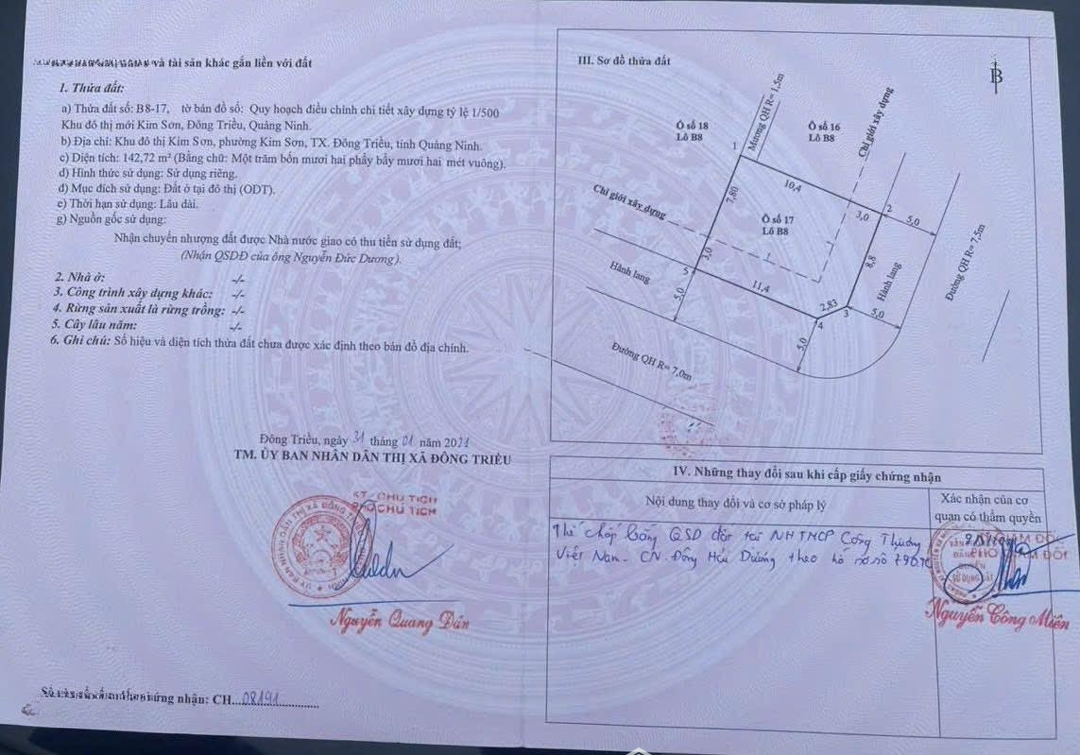 và tài sản khác gắn liền với đất
1. Thửa đất:
a) Thửa đất số: B8-17, tờ bản đồ số: Quy hoạch điều chỉnh chi tiết xây dựng tỷ lệ 1/500
Khu đô thị mới Kim Sơn, Đông Triều, Quảng Ninh.
b) Địa chỉ: Khu đô thị Kim Sơn, phường Kim Sơn, TX. Đông Triều, tỉnh Quảng Ninh.
c) Diện tích: 142,72 m² (Bằng chữ: Một trăm bốn mươi hai phẩy bảy mươi hai mét vuông).
d) Hình thức sử dụng: Sử dụng riêng.
đ) Mục đích sử dụng: Đất ở tại đô thị (ODT).
e) Thời hạn sử dụng: Lâu dài.
g) Nguồn gốc sử dụng:
Nhận chuyển nhượng đất được Nhà nước giao có thu tiền sử dụng đất;
(Nhận QSDĐ của ông Nguyễn Đức Dương).
2. Nhà ở: -/-
3. Công trình xây dựng khác: -/-
4. Rừng sản xuất là rừng trồng: -/-
5. Cây lâu năm: -/-
6. Ghi chú: Số hiệu và diện tích thửa đất chưa được xác định theo bản đồ địa chính.
Đông Triều, ngày 31 tháng 01 năm 2021
TM. ỦY BAN NHÂN DÂN THỊ XÃ ĐÔNG TRIỀU
KT. CHỦ TỊCH
PHÓ CHỦ TỊCH
Nguyễn Quang Dán
ứng nhận: CH...08191
III. Sơ đồ thửa đất
B
Ô số 18
Lô B8
Mương QH R= 1,5m
Ô số 16
Lô B8
Chỉ giới xây dựng
1
10,4
7,80
3,0
2
5,0
Chỉ giới xây dựng
Ô số 17
Lô B8
3,0
8,8
Hành lang
Đường QH R= 7,5m
Hành lang
5
5,0
11,4
2,83
3
5,0
4
5,0
Đường QH R= 7,0m
IV. Những thay đổi sau khi cấp giấy chứng nhận
Nội dung thay đổi và cơ sở pháp lý
Xác nhận của cơ
quan có thẩm quyền
Thế chấp bằng QSD đất tại NH TMCP Công Thương
Việt Nam. CN. Đông Hải Dương theo hồ sơ số 790.TC
Nguyễn Công Miên